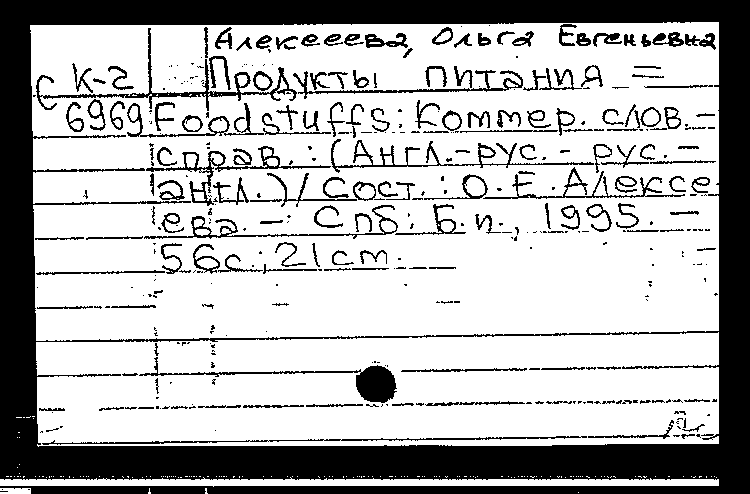 Алексеева, Ольга Евгеньевна
С К-2 Продукты питания =
6969 Foodstuffs: Коммер. слов.-
справ. : (Англ.-рус. - рус. -
англ.) / Сост. : О. Е. Алексе-
ева. - Спб: Б.и., 1995. -
56с.; 21cm.